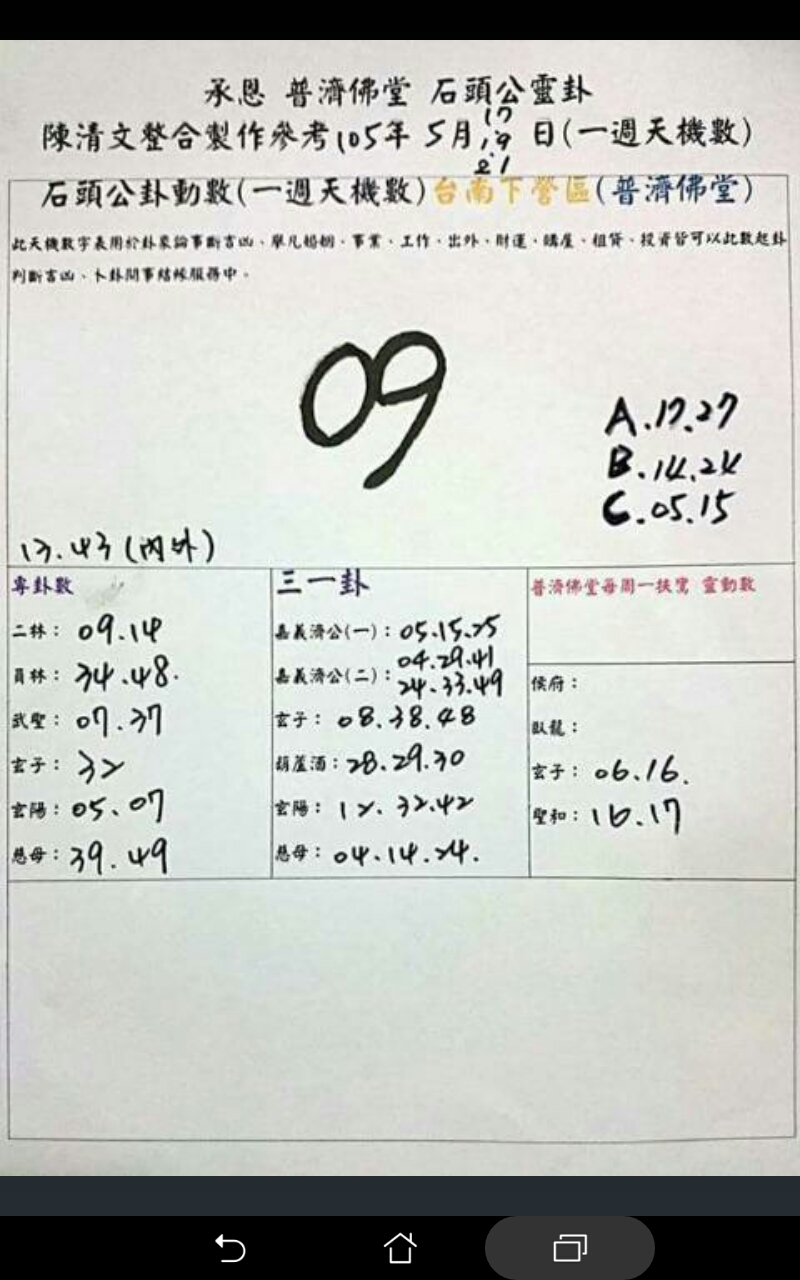 承恩 普濟佛堂 石頭公靈卦
17
陳清文整合製作參考105年 5月19日(一週天機數)
21
石頭公卦動數(一週天機數)台南下營區(普濟佛堂)
此天機數字表用於卦象論事斷吉凶、舉凡婚姻、事業、工作、出外、財運、購屋、租貸、投資皆可以此數起卦
判斷吉凶、卜卦問事結緣服務中。
09
A.17.27
B.14.24
C.05.15
13.43(內外)
專卦數
二林：09.14
員林：34.48.
武聖：07.37
玄子：32
玄陽：05.07
慈母：39.49
三一卦
嘉義濟公(一)：05.15.25
嘉義濟公(二)：04.29.41
24.33.49
玄子：08.38.48
葫蘆酒：28.29.30
玄陽：12.32.42
慈母：04.14.24.
普濟佛堂每周一扶鸞 靈動數
侯府：
臥龍：
玄子：06.16.
聖和：16.17